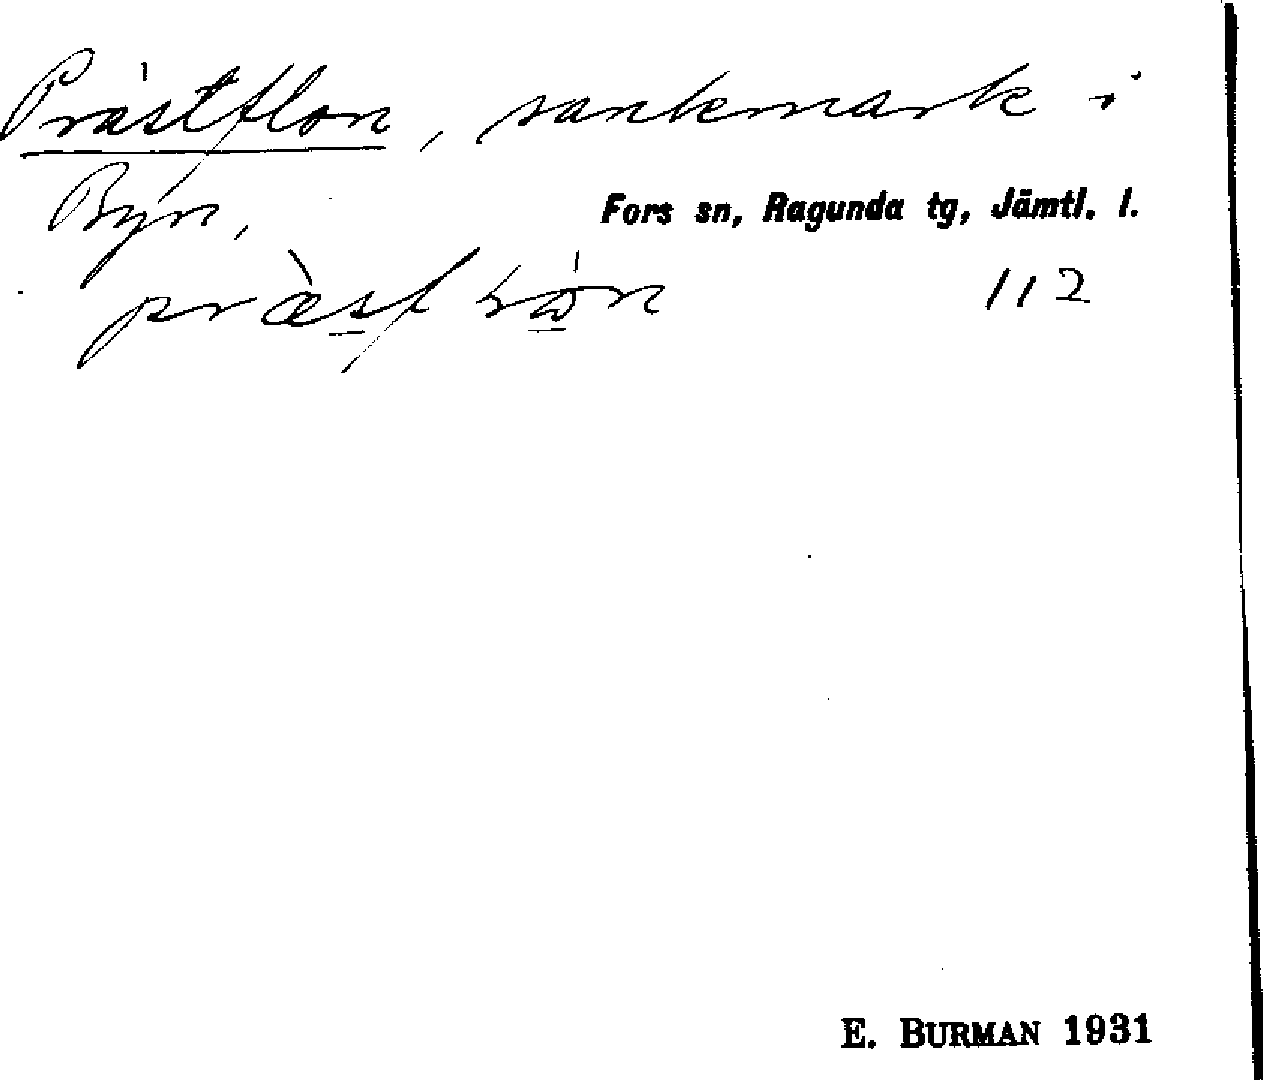 Prästflon, sankmark i
Byn,
Fors sn, Ragunda tg, Jämtl. l.
112
E. BURMAN 1931